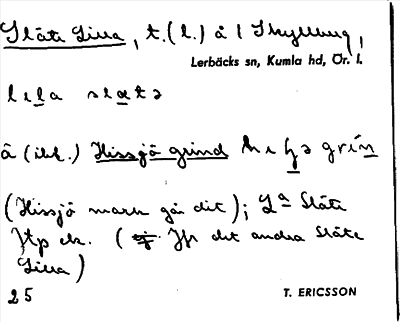 Släte Lilla, t. (l.) å l Skyllbug,
Lerbäcks sn, Kumla hd, Ör. l.
lıla slatə
å (ibl.) Hissjö grind
(Hissjö mark går dit); La Släte
Jtp ek. (Jfr det andra Släte
Lilla)
25
T. ERICSSON